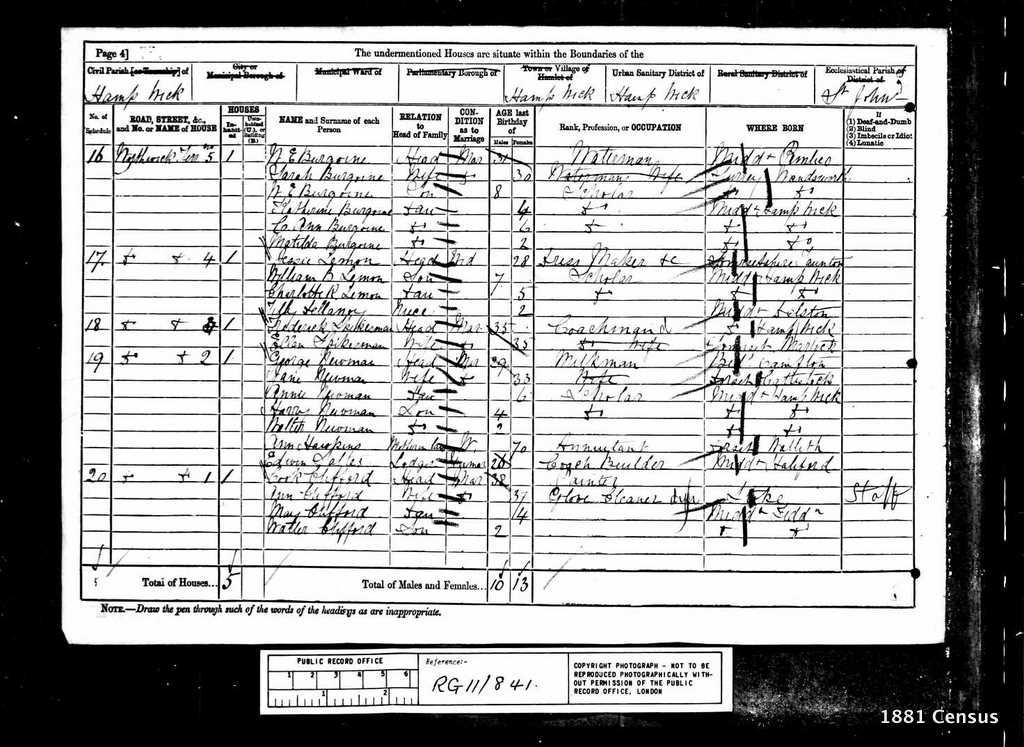 Page 4]
The undermentioned Houses are situate within the Boundaries of the
Civil Parish [or Township] of
City or Municipal Borough of
Municipal Ward of
Parliamentary Borough of
Town or Village or Hamlet of
Urban Sanitary District of
Rural Sanitary District of
Ecclesiastical Parish or District of
Hamp Wick Hamp Wick Hamp Wick St John
No. of Schedule
ROAD, STREET, &c., and No. or NAME of HOUSE
HOUSES
In-habit-ed
Unin-habited (U.), or Building (B.)
NAME and Surname of each Person
RELATION to Head of Family
CON-DITION as to Marriage
AGE last Birthday of
Males Females
Rank, Profession, or OCCUPATION
WHERE BORN
If
(1) Deaf-and-Dumb
(2) Blind
(3) Imbecile or Idiot
(4) Lunatic
16 5 1 W. E Burgoine Head Mar Waterman Midd x Pimlico
Sarah Burgoine Wife 30 Watermans Wife Surrey Wandsworth
W. E Burgoine Son 8 Scholar
Katherine Burgoine Dau 4 Midd x Hamp Wick
C. Ann Burgoine 6
Matilda Burgoine 2
17 4 1 Jessie Lemon Head Wid 28 Dress Maker &c Somersetshire Taunton
William B Lemon Son 7 Scholar Midd x Hamp Wick
Charlotte R Lemon Dau 5
Niece 2 Midd x
18 1 Head Mar 35 Coachman Hamp Wick
Ellen Wife 35 Wife Somerset
19 2 1 George Newman Head Mar 29 Milkman
Jane Newman Wife 33 Wife Dorset
Annie Newman Dau 6 Scholar Midd x Hamp Wick
Harry Newman Son 4
Walter Newman 2
Ann Hawkins Mother in law W 70 Annuitant Dorset
Edwin Lodger Unmar 26 Coach Builder Midd x Haliford
20 1 1 Clifford Head Mar 38 Painter
Ann Clifford Wife 37 Glove Cleaner Stoke Staff
May Clifford Dau 14 Midd x Tedd n
Walter Clifford Son 2
5 Total of Houses... 5 Total of Males and Females... 10 13
NOTE.—Draw the pen through such of the words of the headings as are inappropriate.
PUBLIC RECORD OFFICE
1 2 3 4 5 6
1 2
Reference:-
RG 11/841.
COPYRIGHT PHOTOGRAPH - NOT TO BE
REPRODUCED PHOTOGRAPHICALLY WITH-
OUT PERMISSION OF THE PUBLIC
RECORD OFFICE, LONDON
1881 Census